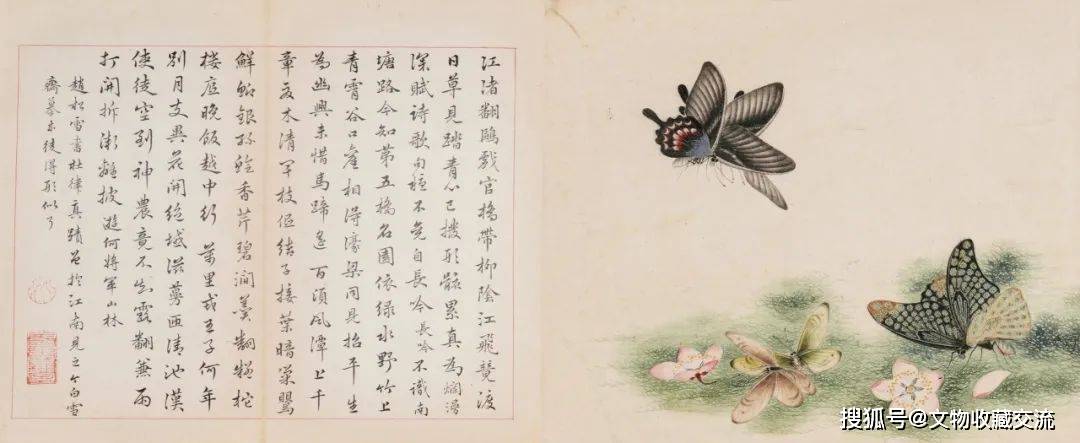 江渚翻鷗戲官橋帶柳陰江飛競渡
日草見踏青心已撥形骸累真為爛漫
深賦詩歌句穩不免自長吟長吟不識南
塘路今知第五橋名園依綠水野竹上
青霄谷口舊相得濠梁同見招平生
為幽興未惜馬蹄遙百頃風潭上千
章夏木清卑枝低結子接葉暗巢鶯
鮮鯽銀絲膾香芹碧澗羹翻疑柁
樓底晚飯越中行萬里戎王子何年
別月支異花開絕域滋蔓匝清池漢
使徒空到神農竟不知露翻兼雨
打開拆漸離披遊何將軍山林
趙松雪書杜律真蹟曾於江南見之今白雪
齋摹未後得形似了
搜狐号@文物收藏交流